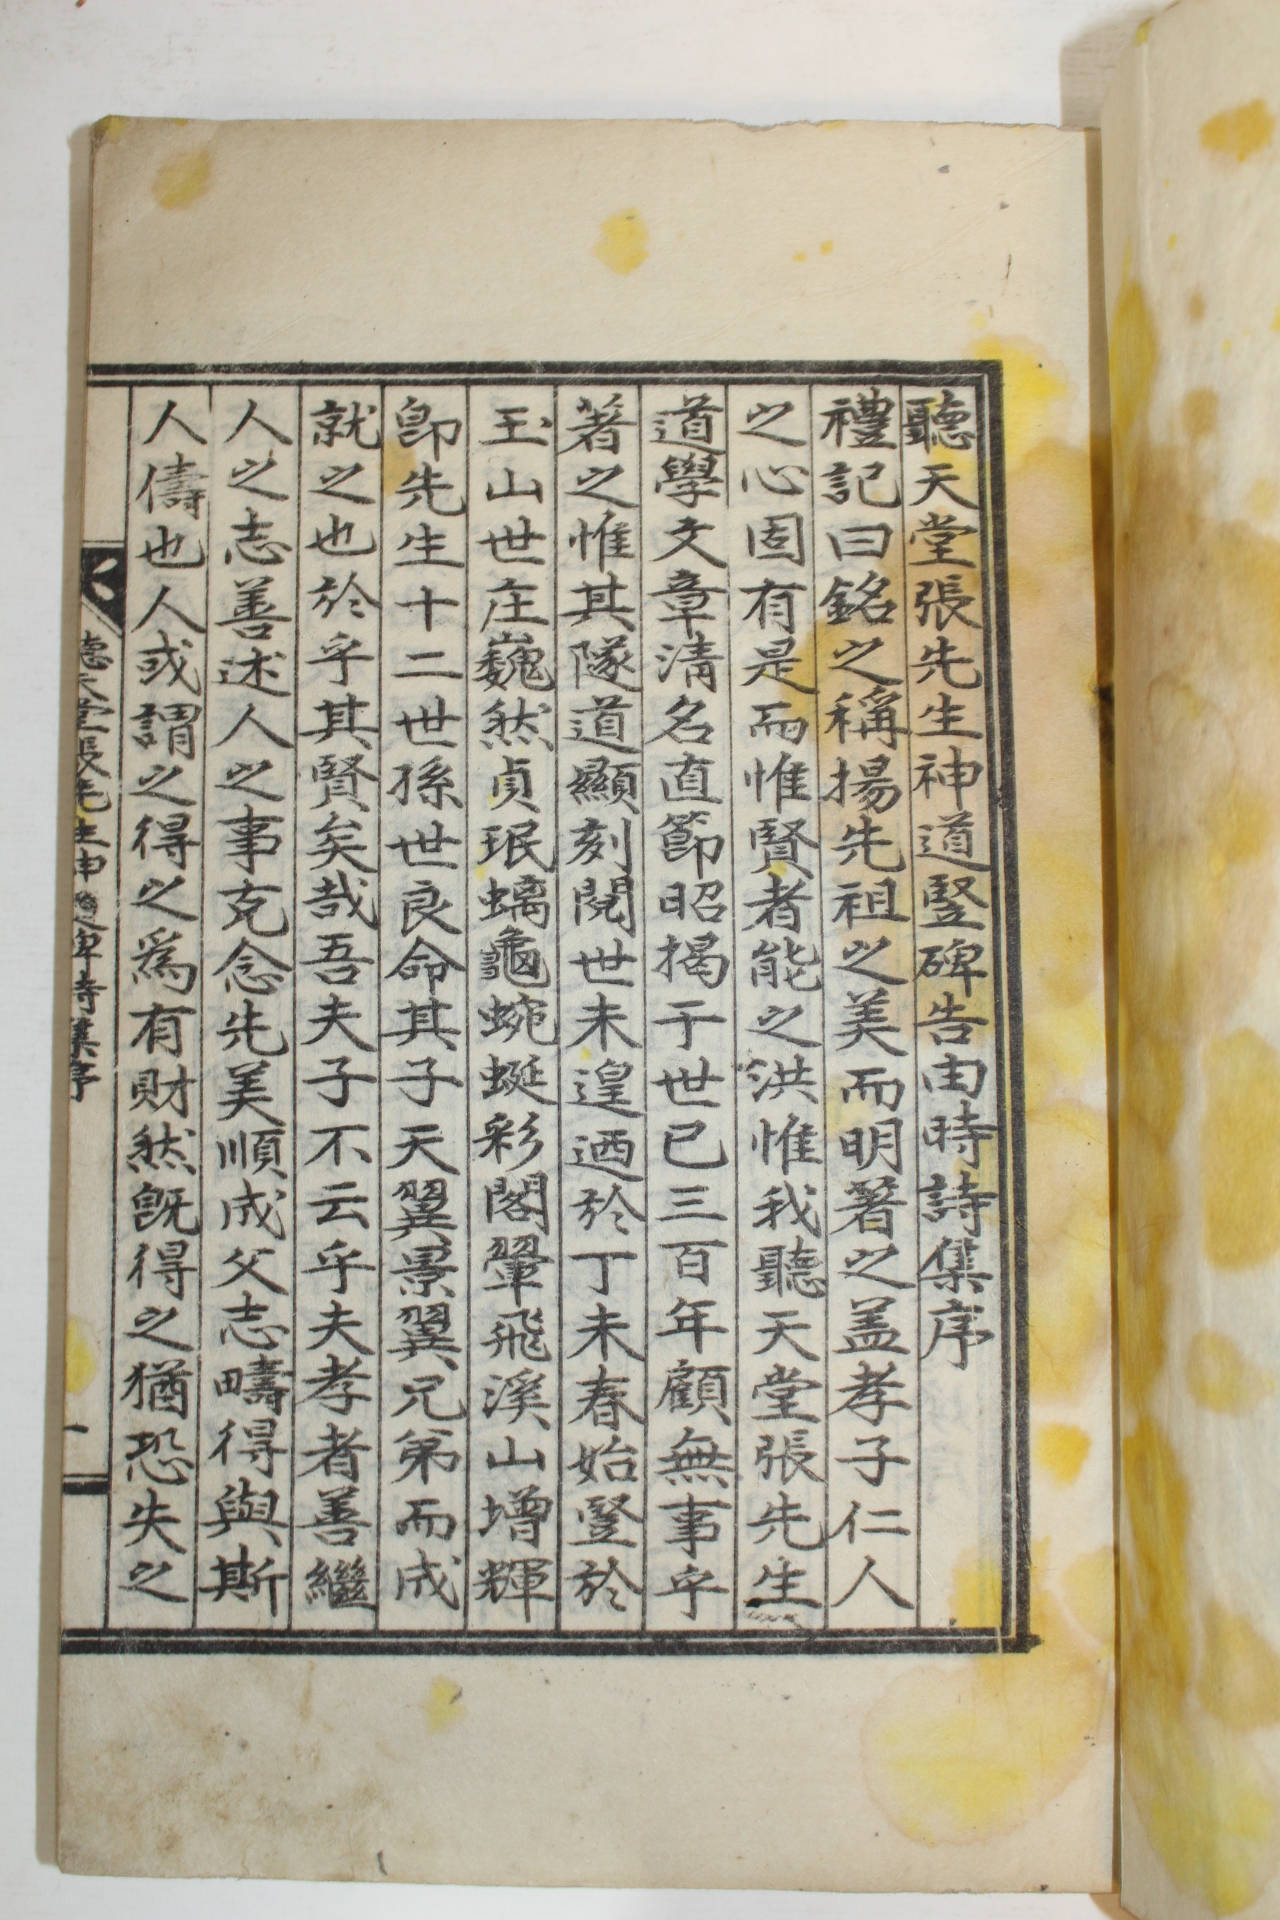 聽天堂張先生神道竪碑告由時詩集序
禮記曰銘之稱揚先祖之美而明著之盖孝子仁人
之心固有是而惟賢者能之洪惟我聽天堂張先生
道學文章淸名直節昭揭于世已三百年顧無事乎
著之惟其隧道顯刻閱世未遑迺於丁未春始竪於
玉山世庄巍然貞珉螭龜蜿蜒彩閣翬飛溪山增輝
卽先生十二世孫世良命其子天翼景翼兄弟而成
就之也於乎其賢矣哉吾夫子不云乎夫孝者善繼
人之志善述人之事克念先美順成父志疇得與斯
人儔也人或謂之得之爲有財然旣得之猶恐失之
聽天堂張先生神道碑詩集序
一